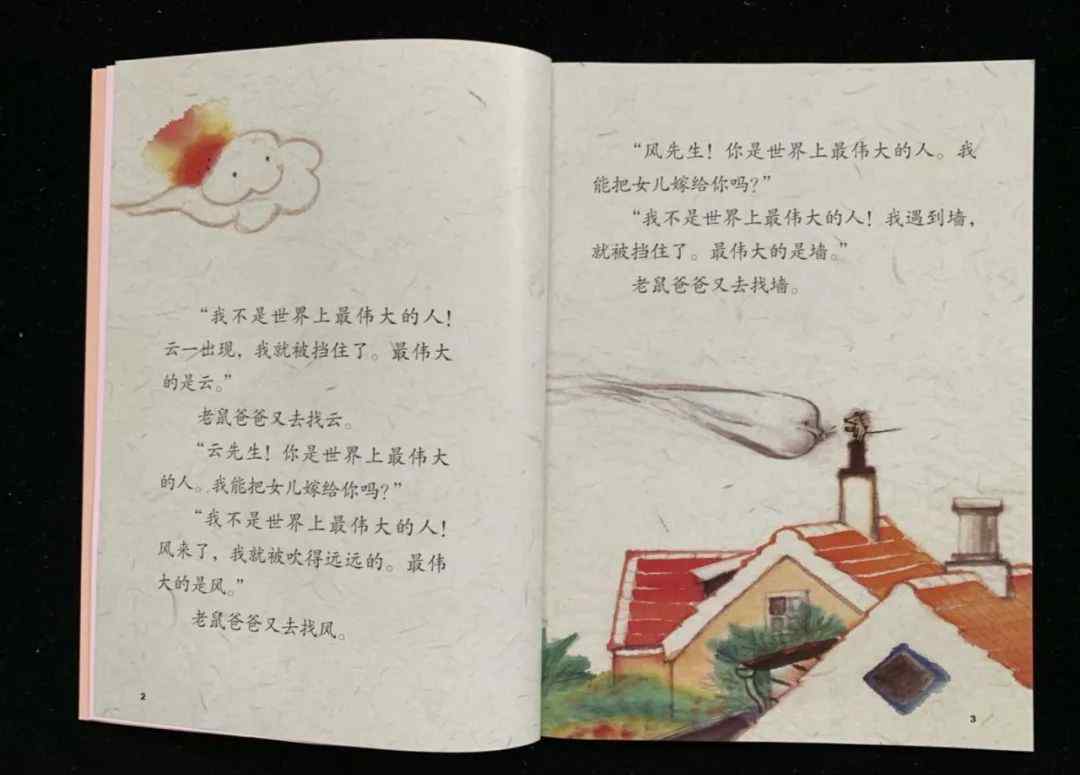 “我不是世界上最伟大的人！
云一出现，我就被挡住了。最伟大
的是云。”
老鼠爸爸又去找云。
“云先生！你是世界上最伟大
的人。我能把女儿嫁给你吗？”
“我不是世界上最伟大的人！
风来了，我就被吹得远远的。最伟
大的是风。”
老鼠爸爸又去找风。
2
“风先生！你是世界上最伟大的人。我
能把女儿嫁给你吗？”
“我不是世界上最伟大的人！我遇到墙，
就被挡住了。最伟大的是墙。”
老鼠爸爸又去找墙。
3